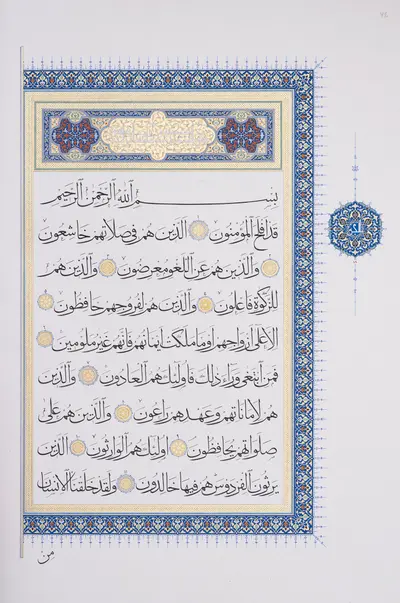 بِسْمِ ٱللَّهِ ٱلرَّحْمَٰنِ ٱلرَّحِيمِ
قَدْ أَفْلَحَ الْمُؤْمِنُونَ الَّذِينَ هُمْ فِي صَلَاتِهِمْ خَاشِعُونَ
وَالَّذِينَ هُمْ عَنِ اللَّغْوِ مُعْرِضُونَ وَالَّذِينَ هُمْ
لِلزَّكَوةِ فَاعِلُونَ وَالَّذِينَ هُمْ لِفُرُوجِهِمْ حَافِظُونَ
إِلَّا عَلَى أَزْوَاجِهِمْ أَوْ مَا مَلَكَتْ أَيْمَانُهُمْ فَإِنَّهُمْ غَيْرُ مَلُومِينَ
فَمَنِ ابْتَغَى وَرَاءَ ذَلِكَ فَأُولَئِكَ هُمُ الْعَادُونَ وَالَّذِينَ
هُمْ لِأَمَانَاتِهِمْ وَعَهْدِهِمْ رَاعُونَ وَالَّذِينَ هُمْ عَلَى
صَلَوَاتِهِمْ يُحَافِظُونَ أُولَئِكَ هُمُ الْوَارِثُونَ الَّذِينَ
يَرِثُونَ الْفِرْدَوْسَ هُمْ فِيهَا خَالِدُونَ وَلَقَدْ خَلَقْنَا الْإِنْسَانَ
مِنْ